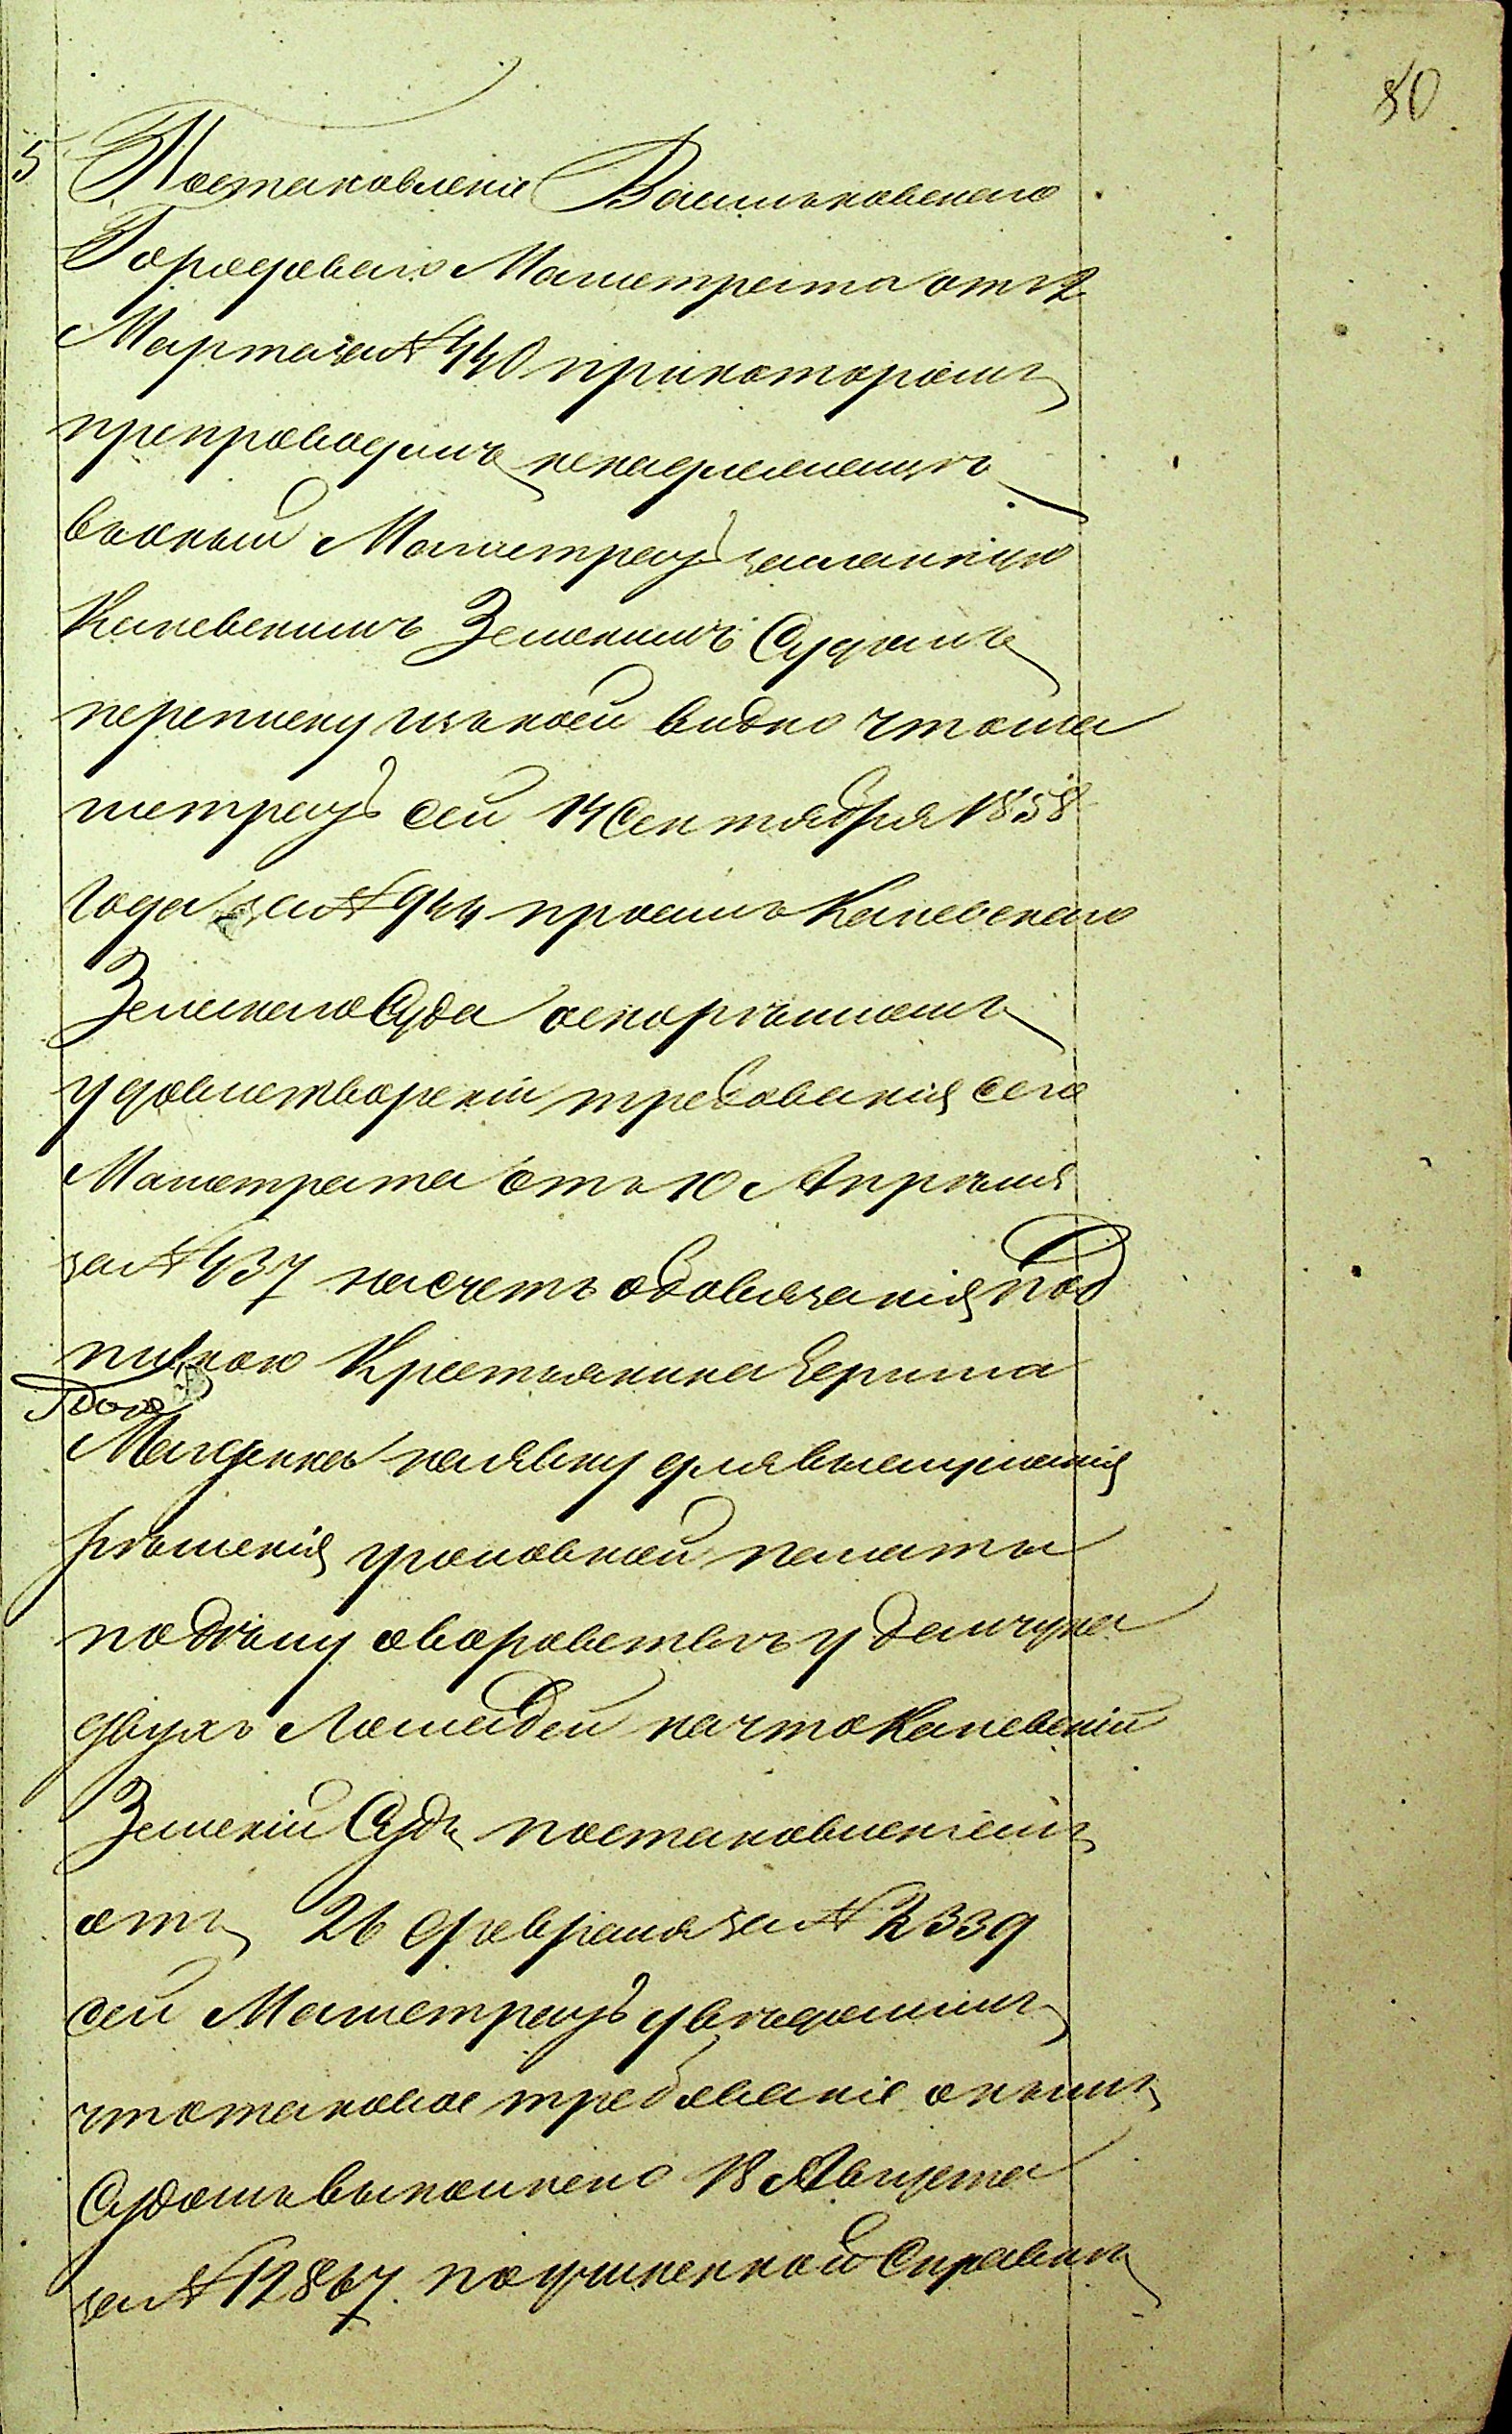 80
5 Постановленіе Васильковскаго
Городоваго Магистрата отъ 12
Марта за № 440 при которомъ
препроводилъ ненадлежащую
въ оный Магистратъ засланную
Каневскимъ Земскимъ Судомъ
переписку изъ коей видно что ма
гистратъ сей 14 Сентября 1858
года за № 944 просилъ Каневскаго
Земскаго Суда о скорѣйшемъ
удовлетвореніи требованія сего
Магистрата отъ 10 Апрѣля
за № 437 насчетъ обовязанія под
пискою Крестьянина
на явку для выслушанія
рѣшенія уголовной палаты
по дѣлу о воровствѣ у
двухъ Лошадей на что Каневскій
Земскій Судъ постановленіемъ
отъ 26 Февраля за № 2339
сей Магистратъ увѣдомилъ
что таковое требованіе онымъ
Судомъ выполнено 18 Августа
за № 12867. по учиненной Справкѣ